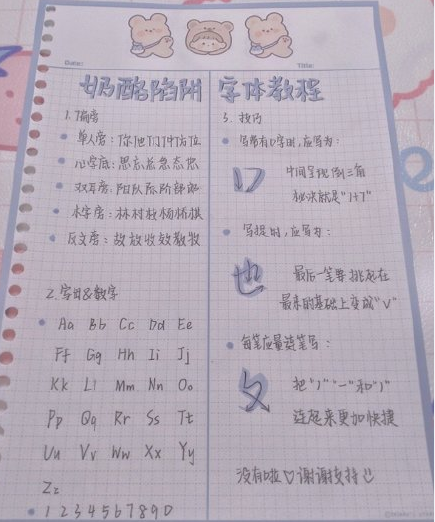 Date:
Title:
奶酪陷阱 字体教程
1.偏旁
单人旁:你他们个什方位
心字底:思忘总急态您
双耳旁:阳队际阶部都
木字旁:林村校杨桥棋
反文旁:故放收效教牧
2.字母&数字
Aa Bb Cc Dd Ee
Ff Gg Hh Ii Jj
Kk Ll Mm Nn Oo
Pp Qq Rr Ss Tt
Uu Vv Ww Xx Yy
Zz
1 2 3 4 5 6 7 8 9 0
3. 技巧
写带有口字时,应写为:
口
中间呈现倒三角
秘诀就是"1+7"
写提时,应写为:
也
最后一笔要挑起在
最末的基础上变成"V"
每笔应量连笔写:
攵
把"丿""一"和"丿"
连起来更加快捷
没有啦♡谢谢支持